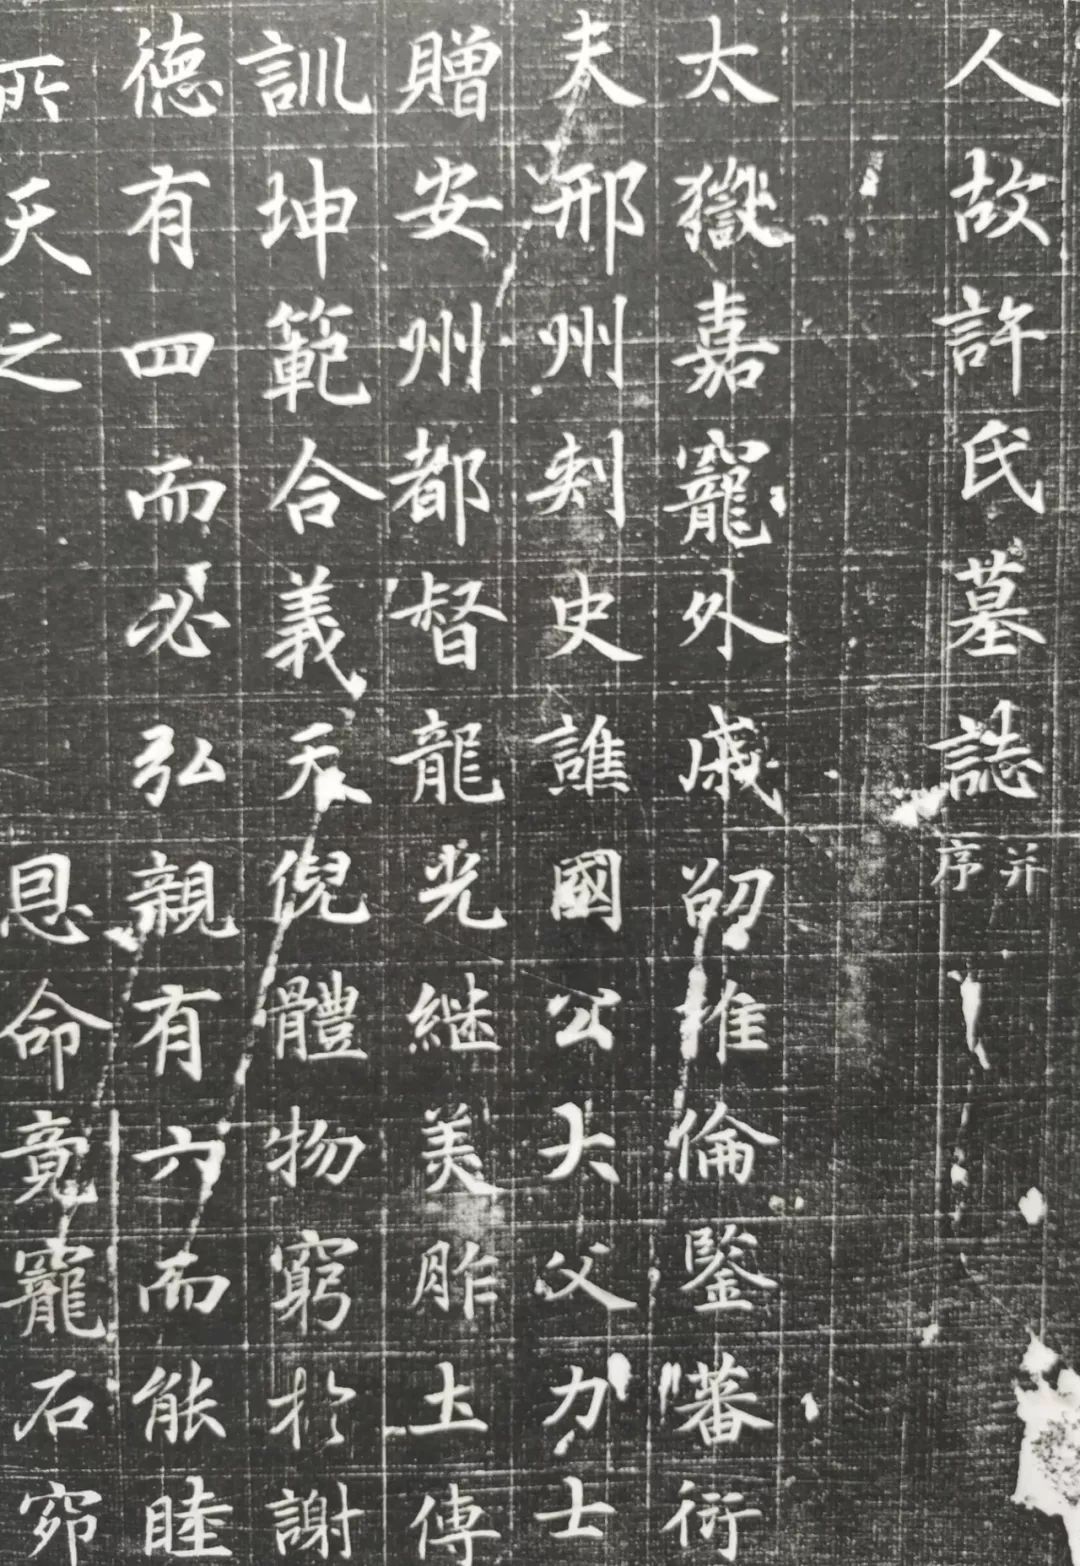 人故許氏墓誌并序
太嶽嘉寵外戚詔推倫鑒蕃衍
夫邢州刾史譙國公大父力士
贈安州都督龍光継美胙土傳
訓坤範合義天倪體物窮於謝
德有四而必弘親有六而能睦
所天之 恩命竟窀石窌